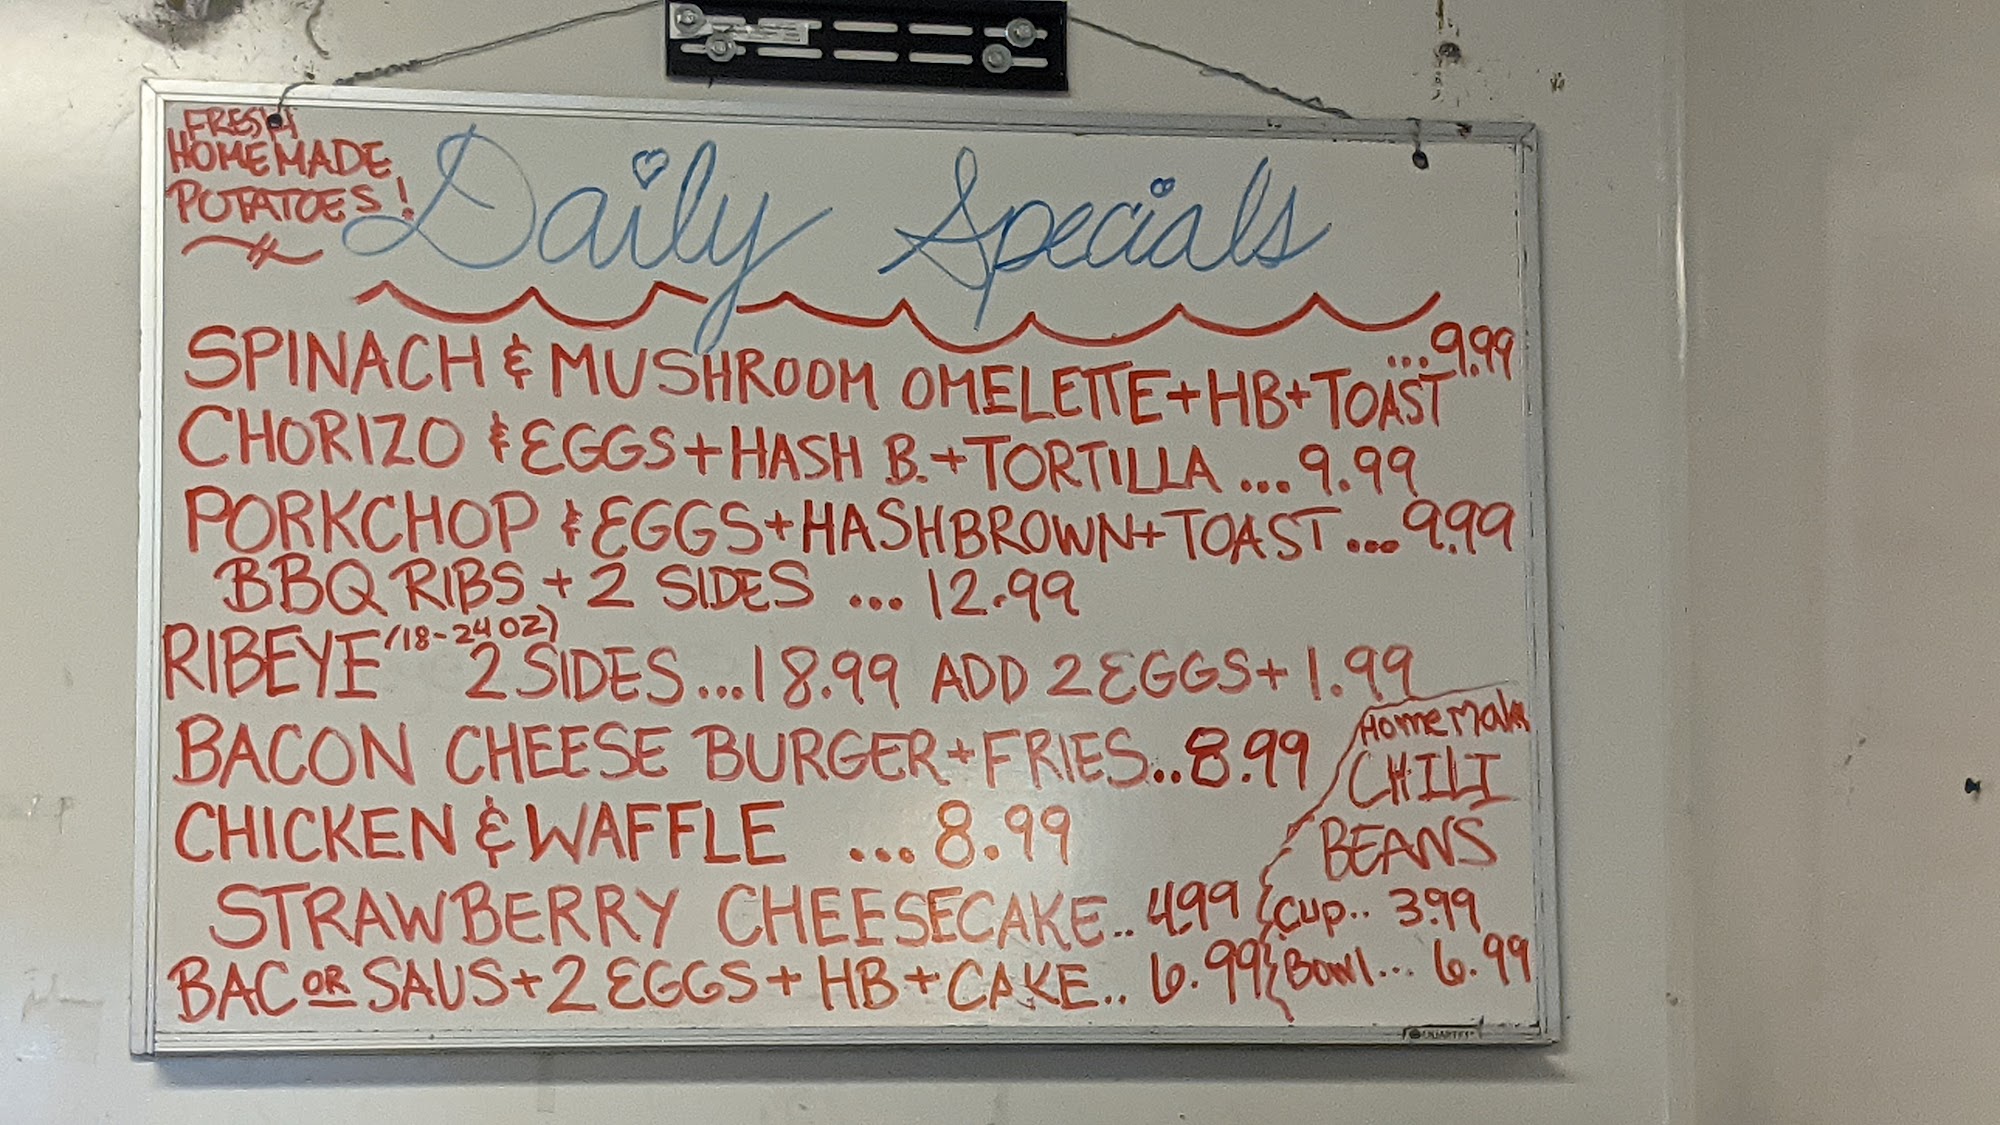 FRESH
HOMEMADE
POTATOES!
Daily Specials
SPINACH & MUSHROOM OMELETTE+HB+TOAST ...9.99
CHORIZO & EGGS+HASH B.+TORTILLA ...9.99
PORKCHOP & EGGS+HASHBROWN+TOAST...9.99
BBQ RIBS + 2 SIDES ... 12.99
RIBEYE (18-24 OZ) 2 SIDES...18.99 ADD 2 EGGS+1.99
BACON CHEESE BURGER+FRIES..8.99
CHICKEN & WAFFLE ...8.99
STRAWBERRY CHEESECAKE.. 4.99
BAC OR SAUS+2 EGGS+HB+CAKE.. 6.99
HomeMade
CHILI
BEANS
Cup.. 3.99
Bowl... 6.99